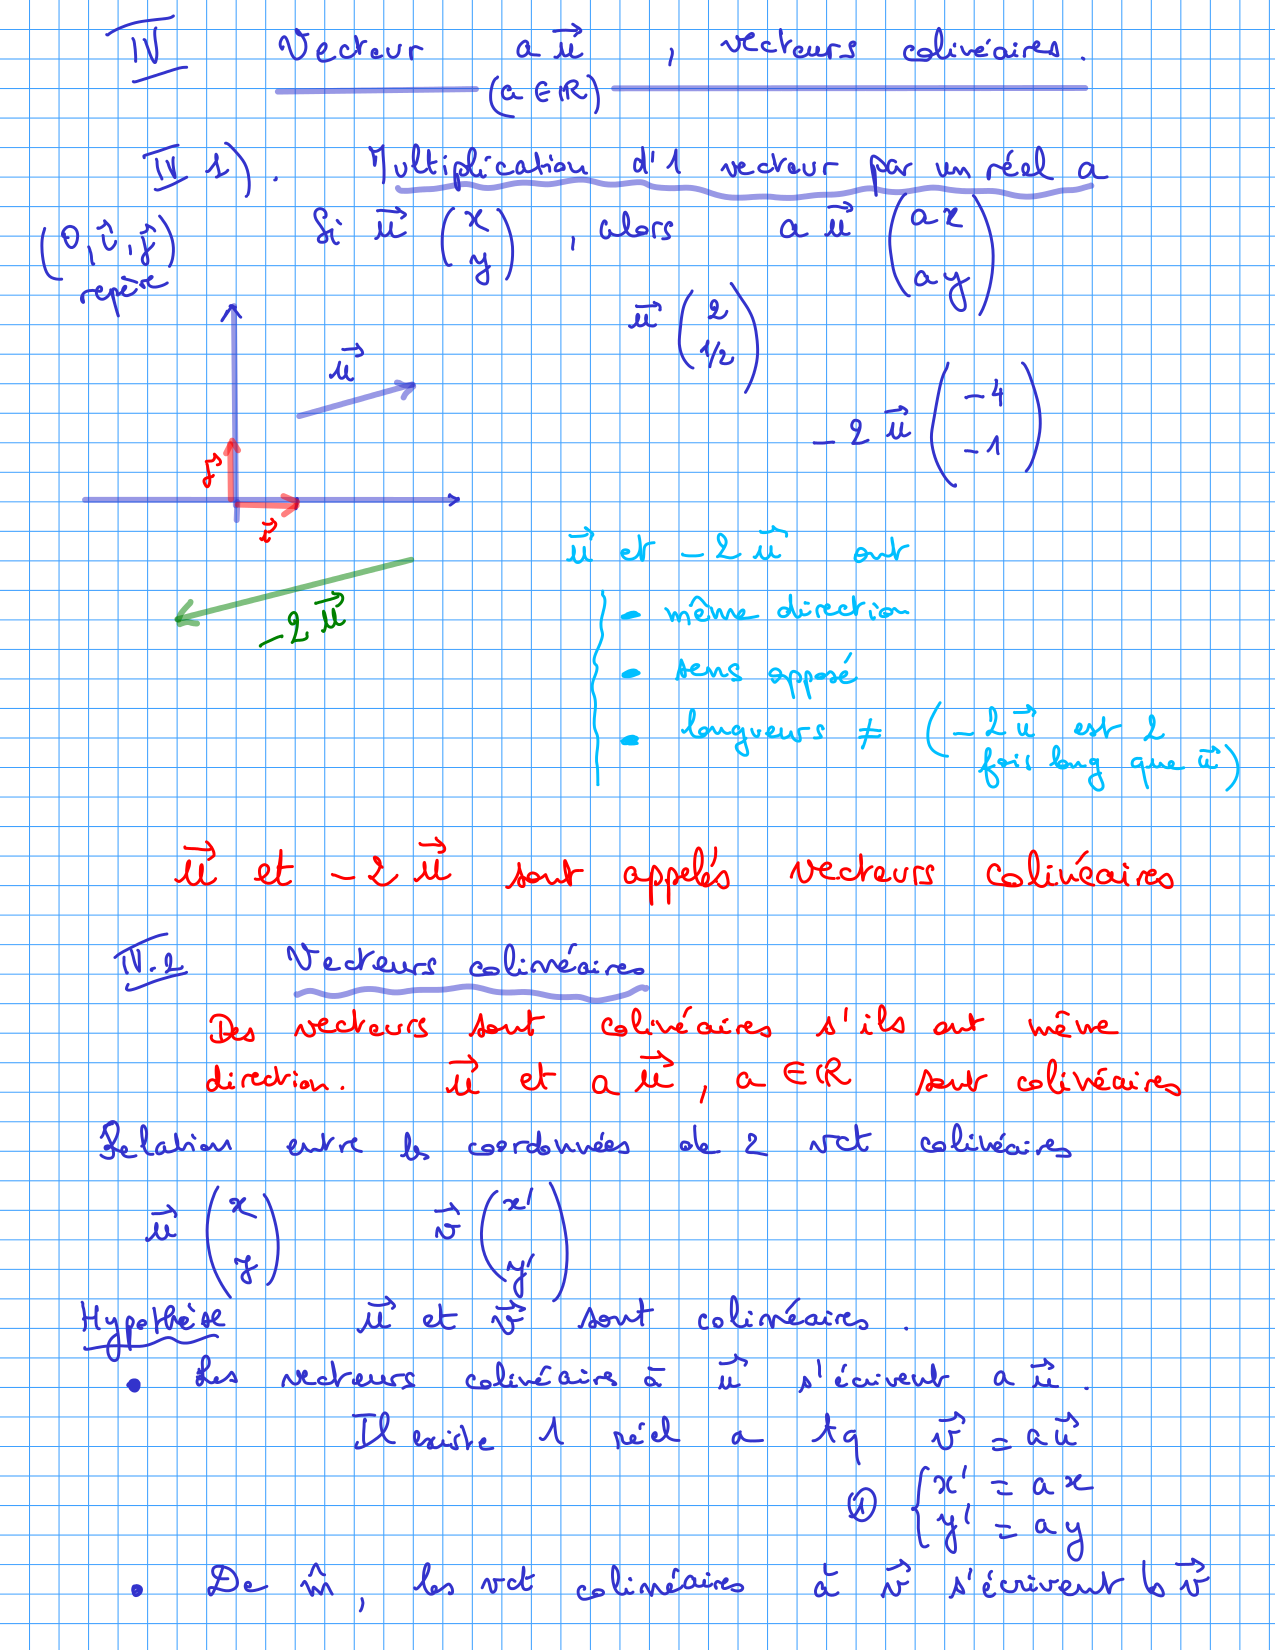 IV Vecteur a u⃗ , vecteurs colinéaires.
(a ∈ ℝ)
IV 1). Multiplication d'1 vecteur par un réel a
(O, i⃗, j⃗) repère
Si u⃗ (x y) , alors a u⃗ (ax ay)
u⃗ (2 1/2)
u⃗
-2 u⃗ (-4 -1)
j⃗
i⃗
-2 u⃗
u⃗ et -2 u⃗ ont
• même direction
• sens opposé
• longueurs ≠ (-2 u⃗ est 2
fois long que u⃗)
u⃗ et -2 u⃗ sont appelés vecteurs colinéaires
IV.2 Vecteurs colinéaires
Des vecteurs sont colinéaires s'ils ont même
direction. u⃗ et a u⃗ , a ∈ ℝ sont colinéaires
Relation entre les coordonnées de 2 vct colinéaires
u⃗ (x y) v⃗ (x' y')
Hypothèse u⃗ et v⃗ sont colinéaires .
• Les vecteurs colinéaires à u⃗ s'écrivent a u⃗ .
Il existe 1 réel a tq v⃗ = a u⃗
① { x' = a x
y' = a y
• De m̂, les vct colinéaires à v⃗ s'écrivent b v⃗